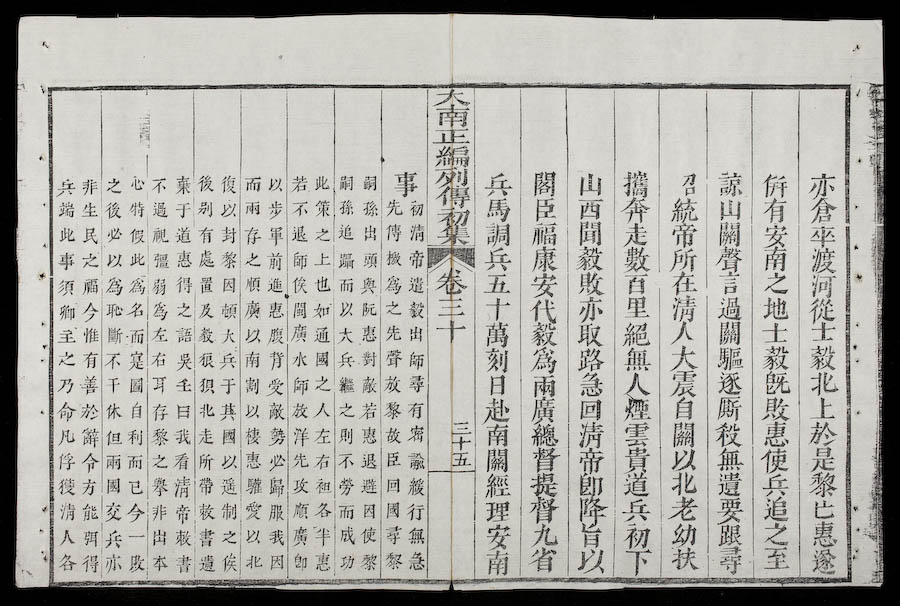 亦倉卒渡河從士毅北上於是黎亡惠遂
倂有安南之地士毅旣敗惠使兵追之至
諒山關聲言過關驅逐厮殺無遺要跟尋
紹統帝所在清人大震自關以北老幼扶
攜奔走數百里絕無人煙雲貴道兵初下
山西聞毅敗亦取路急回清帝卽降旨以
閣臣福康安代毅爲兩廣總督提督九省
兵馬調兵五十萬刻日赴南關經理安南
大南正編列傳初集 卷三十 三十五
事 初清帝遣毅出師尋有密諭緩行無急
先傳檄爲之先聲放黎故臣回國尋黎
嗣孫出頭與阮惠對敵若惠退避因使黎
嗣孫追躡而以大兵繼之則不勞而成功
此策之上也如通國之人左右袒各半惠
若不退師俟閩廣水師放洋先攻順廣卽
以步軍前進惠腹背受敵勢必歸服我因
而兩存之順廣以南割以棲惠驩愛以北
復以封黎因頓大兵于其國以遥制之俟
後別有處置及毅狼狽北走所帶敕書遺
棄于道惠得之語吳壬曰我看清帝敕書
不過視彊弱爲左右耳存黎之擧非出本
心特假此爲名而寔圖自利而已今一敗
之後必以爲恥斷不干休但兩國交兵亦
非生民之福今惟有善於辭令方能弭得
兵端此事須卿主之乃命凡俘獲清人各